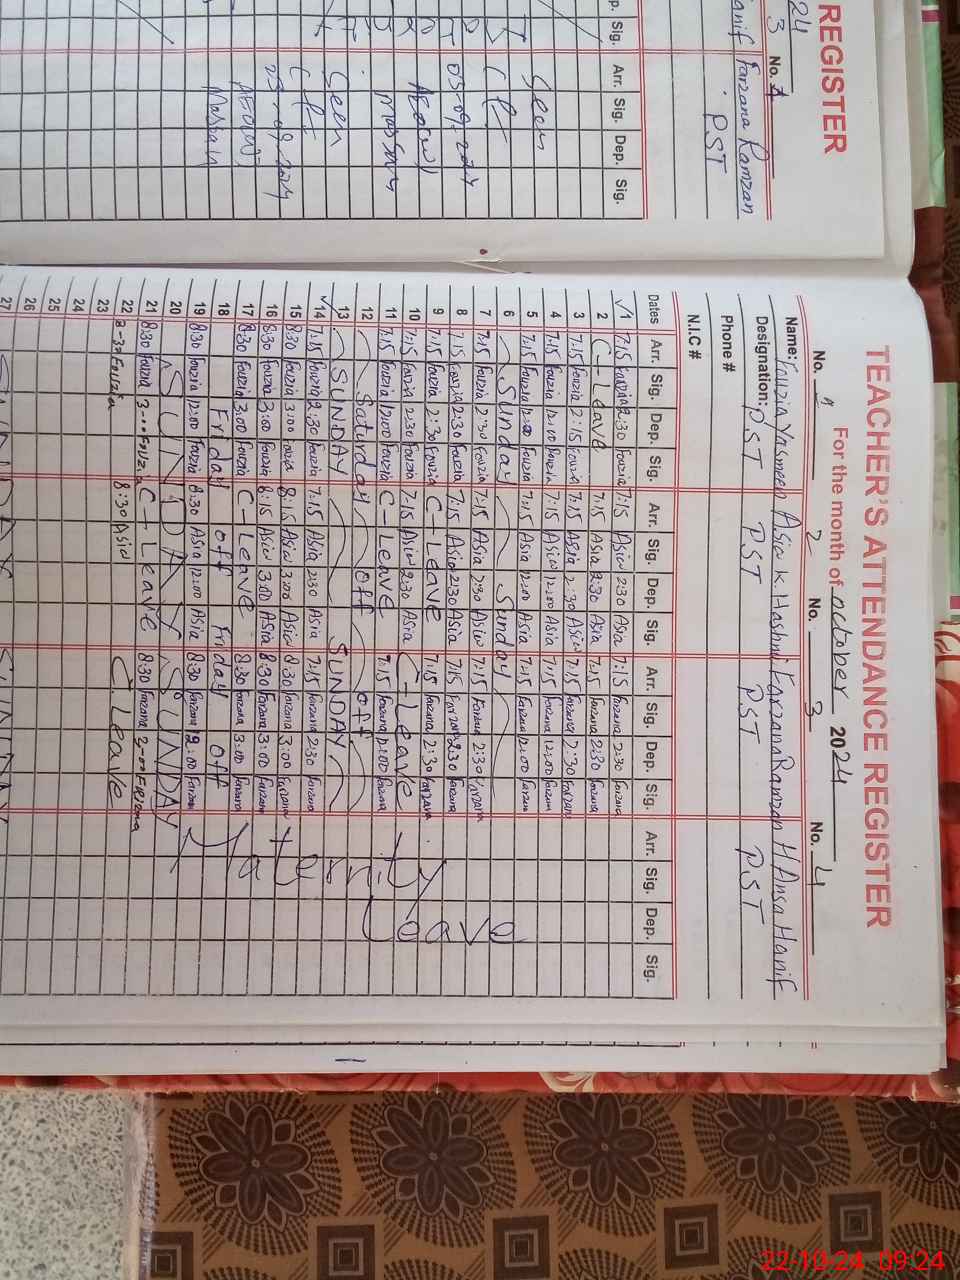 24
REGISTER
3 No. 4
Hanif Farzana Ramzan
PST
p. Sig. Arr. Sig. Dep. Sig.
Seen
03-09-2024
Seen
TEACHER'S ATTENDANCE REGISTER
For the month of october 2024
No. 2 No. 3 No. 4
Name: Fouzia Yasmeen Asia K.Hashmi Farzana Ramzan H Amsa Hanif
Designation: PST PST PST PST
Phone #
N.I.C #
Dates Arr. Sig. Dep. Sig. Arr. Sig. Dep. Sig. Arr. Sig. Dep. Sig. Arr. Sig. Dep. Sig.
1 7:15 Fouzia 2:30 Fouzia 7:15 Asia 2:30 Asia 7:15 Farzana 2:30 Farzana
2 C-Leave 7:15 Asia 2:30 Asia 7:15 Farzana 2:30 Farzana
3 7:15 Fouzia 2:15 Fouzia 7:15 Asia 2:30 Asia 7:15 Farzana 2:30 Farzana
4 7:15 Fouzia 12:00 Fouzia 7:15 Asia 12:00 Asia 7:15 Farzana 12:00 Farzana
5 7:15 Fouzia 12:00 Fouzia 7:15 Asia 12:00 Asia 7:15 Farzana 12:00 Farzana
6 Sunday Sunday
7 7:15 Fouzia 2:30 Fouzia 7:15 Asia 2:30 Asia 7:15 Farzana 2:30 Farzana
8 7:15 Fouzia 2:30 Fouzia 7:15 Asia 2:30 Asia 7:15 Farzana 2:30 Farzana
9 7:15 Fouzia 2:30 Fouzia C-Leave 7:15 Farzana 2:30 Farzana
10 7:15 Fouzia 2:30 Fouzia 7:15 Asia 2:30 Asia C-Leave
11 7:15 Fouzia 12:00 Fouzia C-Leave 7:15 Farzana 12:00 Farzana
12 Saturday off off
13 SUNDAY SUNDAY
14 7:15 Fouzia 2:30 Fouzia 7:15 Asia 2:30 Asia 7:15 Farzana 2:30 Farzana
15 8:30 Fouzia 3:00 Fouzia 8:15 Asia 3:00 Asia 8:30 Farzana 3:00 Farzana
16 8:30 Fouzia 3:00 Fouzia 8:15 Asia 3:00 Asia 8:30 Farzana 3:00 Farzana
17 8:30 Fouzia 3:00 Fouzia C-Leave 8:30 Farzana 3:00 Farzana
18 Friday off Friday off
19 8:30 Fouzia 12:00 Fouzia 8:30 Asia 12:00 Asia 8:30 Farzana 12:00 Farzana
20 SUNDAY SUNDAY
21 8:30 Fouzia 3:00 Fouzia C-Leave 8:30 Farzana 3:00 Farzana
22 8:30 Fouzia 8:30 Asia C Leave
23
24
25
26
27 SUNDAY SUNDAY
22-10-24 09:24